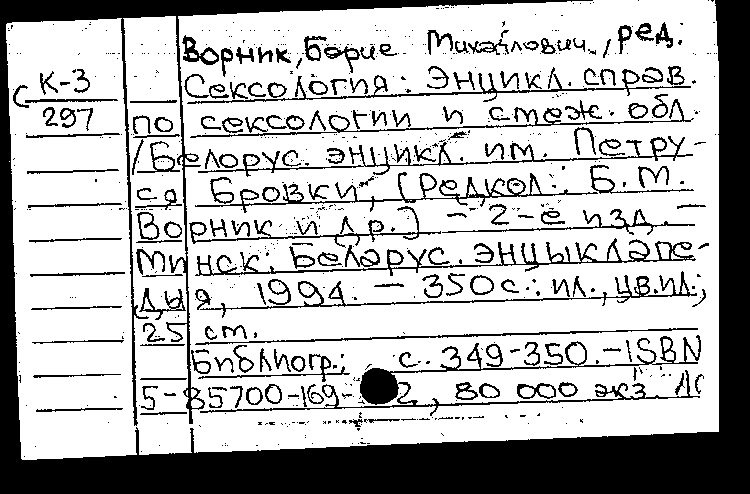 Ворник, Борис Михайлович, ред.
К-3 Сексология: Энцикл. справ.
С 297 по сексологии и смеж. обл.
/Белорус. энцикл. им. Петру-
ся Бровки; [Редкол.: Б.М.
Ворник и др.] - 2-е изд. -
Минск: Беларус. энцыклапе-
дыя, 1994. - 350 с.: ил., цв.ил.;
25 ст.
Библиогр.: с. 349-350. - ISBN
5-85700-169- 2, 80 000 экз.